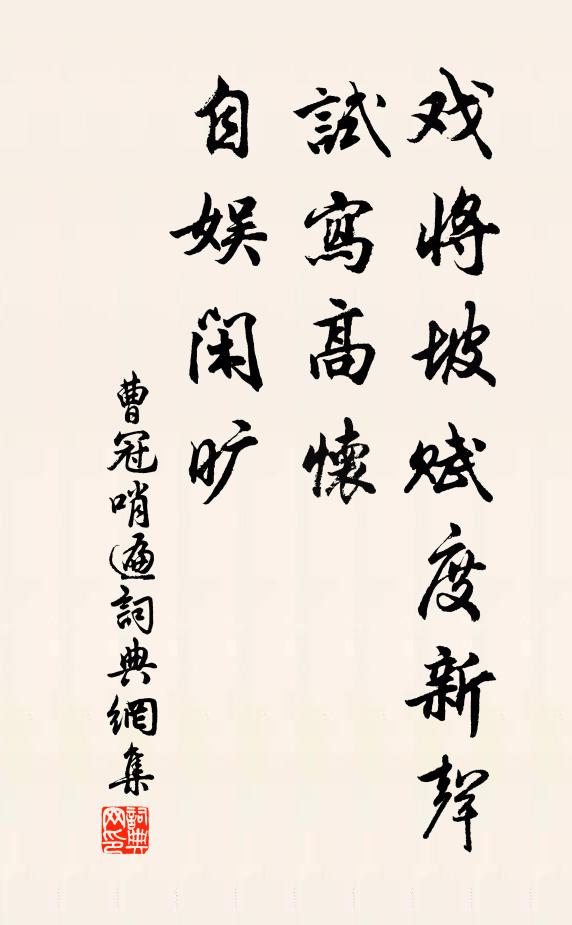 戏将坡赋度新聲
試寫高懷
自娱闲旷
曹冠哨遍詞典網集
詞典網印